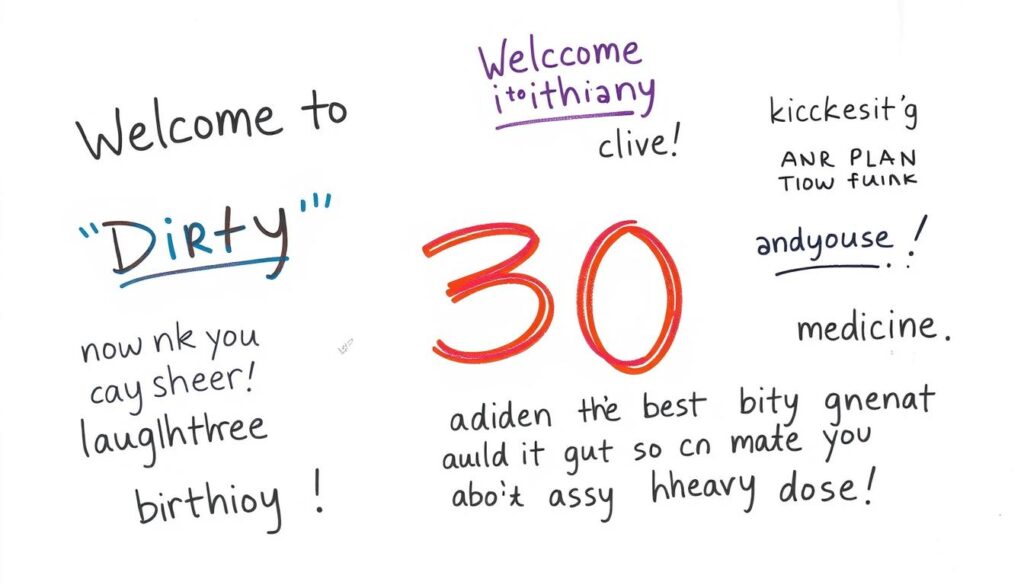 Welcome to
"Dirty'"
now nk you
cay sheer!
lauglhthree
birthioy !
Welccome
itoithiany
clive!
30
adiden the best bity gnenat
auld it gut so cn mate you
abo't assy hheavy dose!
kicckesit'g
ANR PLAN
TIOW fuink
andyouse !
medicine.